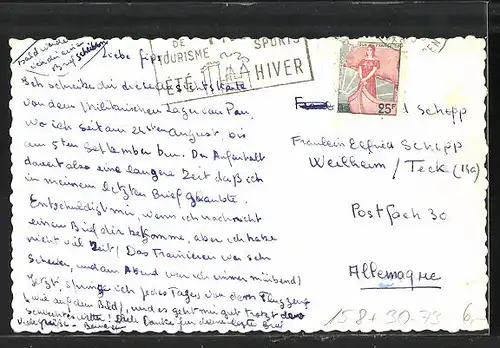 Bald werde
ich dir einen
Brief schreiben
Liebe
DE
TOURISME
SPORTS
ÉTÉ HIVER
25F
Ich schreibe dir diese Ansichtskarte
von dem Militärischen Lager von Pau,
wo ich seit am 21sten August, bis
am 5ten September bin. Der Aufenthalt
dauert also eine längere Zeit daß ich
in meinem letzten Brief glaubte.
Entschuldigt mir, wenn ich noch nicht
einen Brief dir bekomme, aber ich habe
nicht viel Zeit! Das Trainieren war sehr
schwer, und am Abend war ich immer müde
Jetzt, springe ich jedes Tages von dem Flugzeug
(wie auf dem Bild), und es geht mir gut trotz des
schlechtes Wetter! Viele Danke für deine letzte
Viele Grüße -
Schepp
Fraulein Elfried SCHEPP
Weilheim / Teck (
Postfach 30
Allemagne
158+30-73